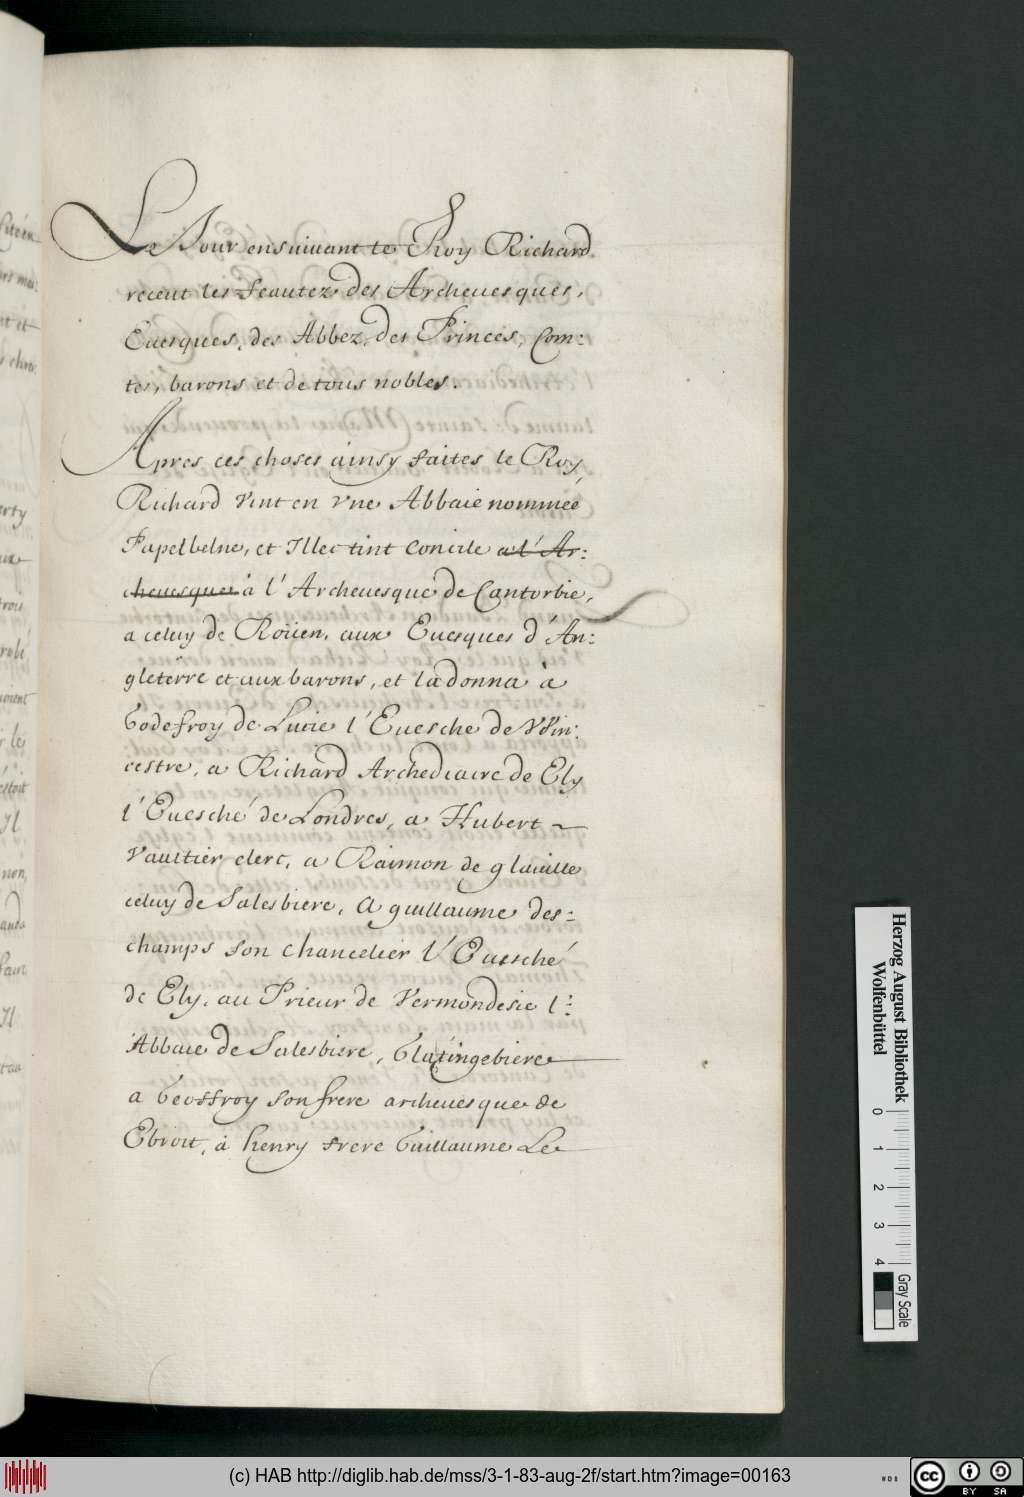 Le Jour ensuivant le Roy Richard
receut les feautez des Archeuesques,
Euesques, des Abbez, des Princes, Com-
tes, barons et de tous nobles.
Apres ces choses ainsy faites le Roy
Richard vint en vne Abbaie nommée
Fapelbelne, et Illec tint Concile a l'Ar-
cheuesques à l'Archeuesque de Cantorbie,
a celuy de Roüen, aux Euesques d'An-
gleterre et aux barons, et la donna à
Godefroy de Lucie l'Euesche de VVin-
cestre, a Richard Archediacre de Ely
l'Euesché de Londres, a Hubert
Vaultier clerc, a Raimon de glauille
celuy de Salesbiere, A guillaume des-
champs son chancelier l'Euesché
de Ely, au Prieur de Vermondesie l'
Abbaie de Salesbiere, Glatingebiere
a Geoffroy son frere archeuesque de
Ebroit, à henry frere Guillaume Le
Herzog August Bibliothek
Wolfenbüttel
0 1 2 3 4
Gray Scale
(c) HAB http://diglib.hab.de/mss/3-1-83-aug-2f/start.htm?image=00163
WDB
cc
BY SA